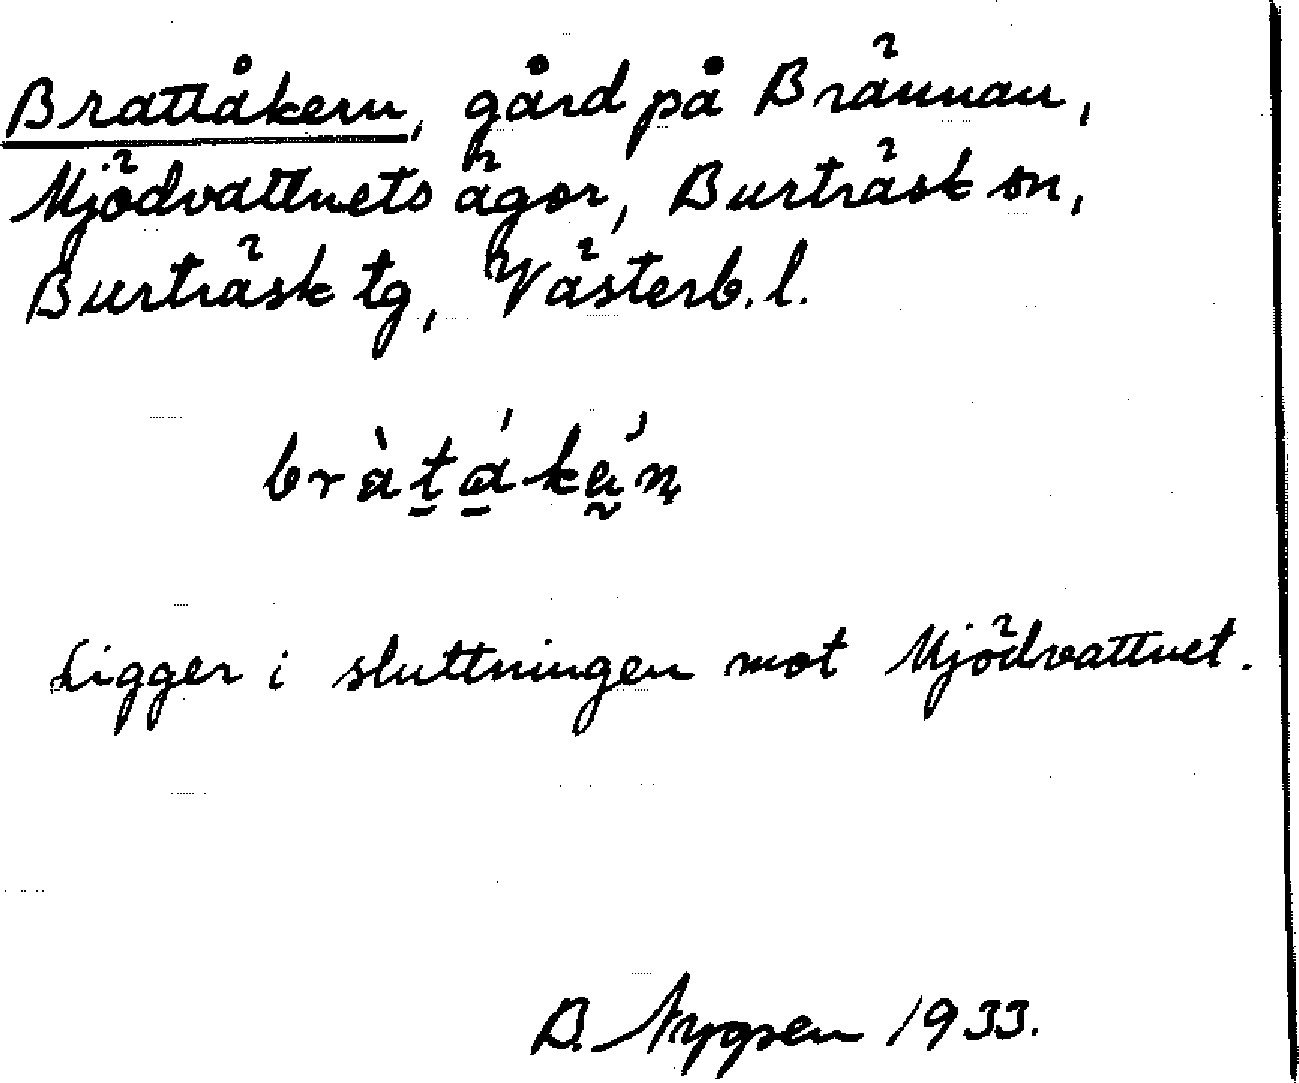 Brattåkern, gård på Brännan,
Mjödvattnets ägor, Burträsk sn,
Burträsk tg, Västerb. l.
Ligger i sluttningen mot Mjödvattnet.
B. Nygren 1933.